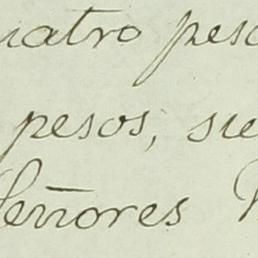 uatro peso
pesos, sie
Señores